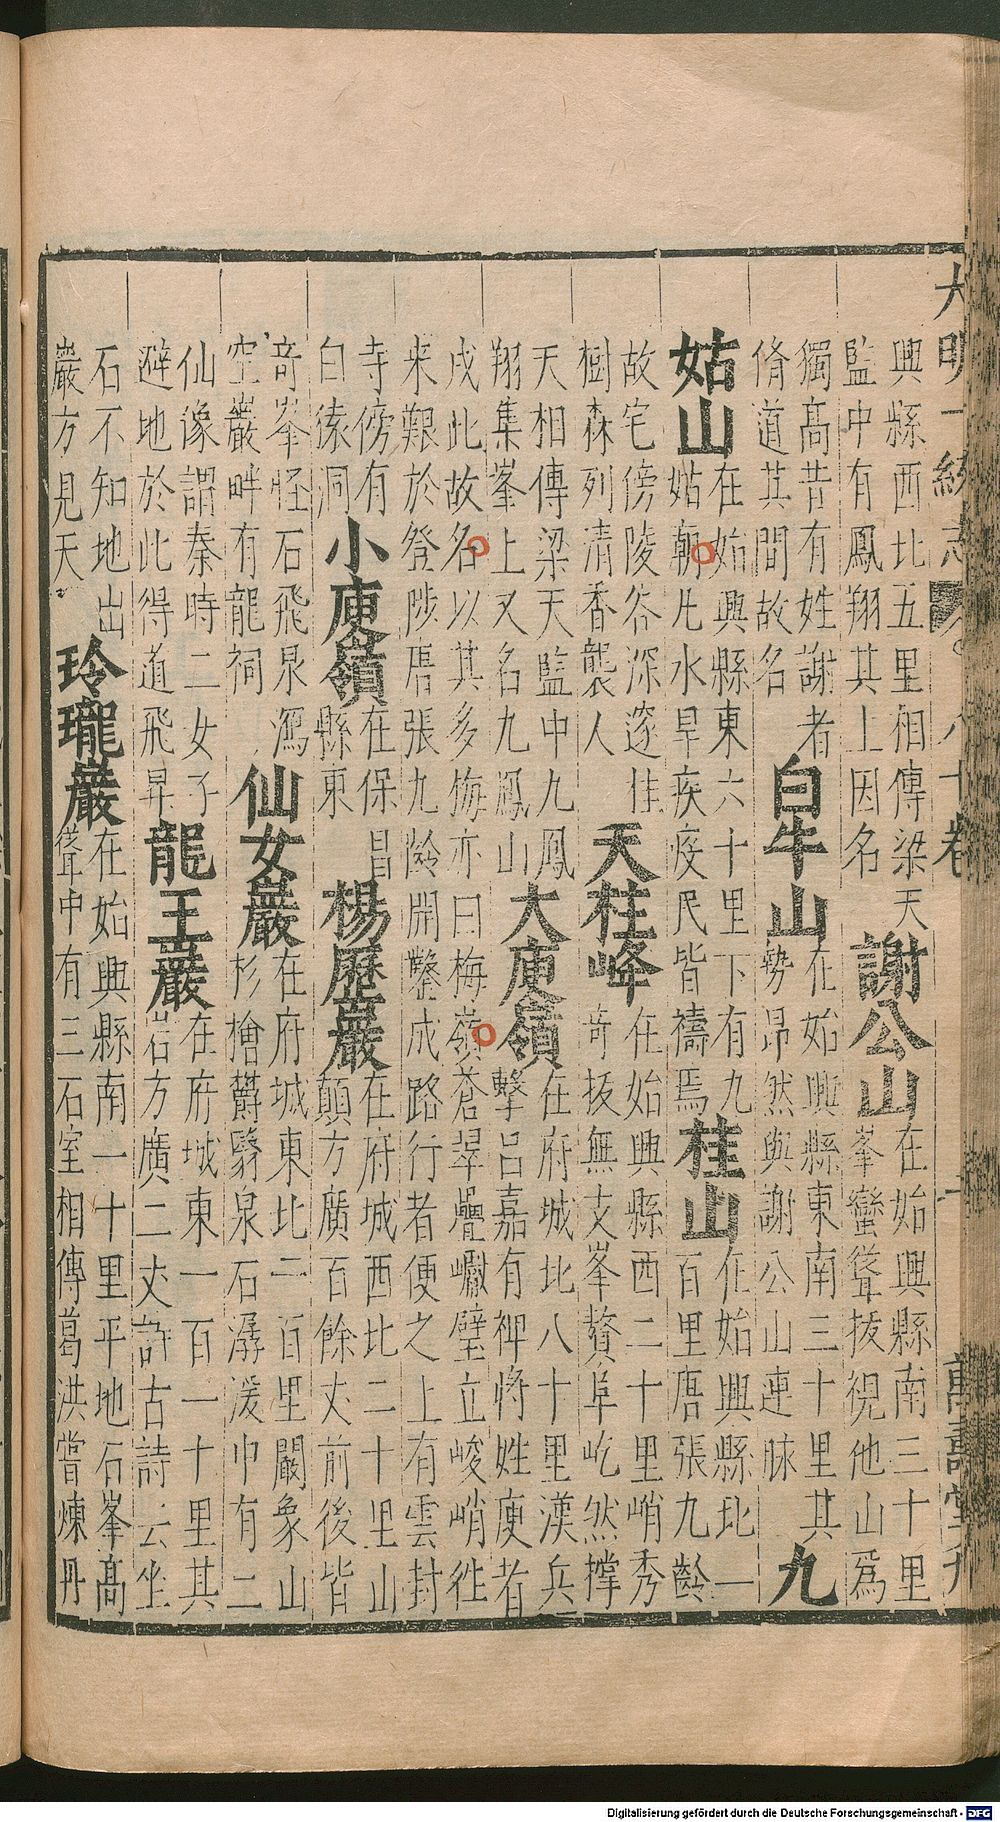 大明一統志 八十卷 萬壽堂刋
興縣西北五里相傳梁天
監中有鳳翔其上因名
謝公山
在始興縣南三十里
峯巒聳拔視他山爲
獨髙昔有姓謝者
脩道其間故名
白牛山
在始興縣東南三十里其
勢昂然與謝公山連脉
九
姑山
在始興縣東六十里下有九
姑朝凡水旱疾疫民皆禱焉
桂山
在始興縣北一
百里唐張九齡
故宅傍陵谷深邃桂
樹森列清香襲人
天柱峰
在始興縣西二十里峭秀
竒拔無支峯贅阜屹然撐
天相傳梁天監中九鳳
翔集峯上又名九鳳山
大庾嶺
在府城北八十里漢兵
擊吕嘉有裨將姓庾者
戍此故名以其多梅亦曰梅嶺蒼翠疊巘壁立峻峭徃
来艱於登陟唐張九齡開鑿成路行者便之上有雲封
寺傍有
白猿洞
小庾嶺
在保昌
縣東
楊歷巖
在府城西北二十里山
顛方廣百餘丈前後皆
竒峯怪石飛泉瀉
空巖畔有龍祠
仙女巖
在府城東北二百里巖象山
杉檜欝翳泉石潺湲中有二
仙像謂秦時二女子
避地於此得道飛昇
龍王巖
在府城東一百一十里其
岩方廣二丈許古詩云坐
石不知地出
巖方見天
玲瓏巖
在始興縣南一十里平地石峯髙
聳中有三石室相傳葛洪嘗煉丹
Digitalisierung gefördert durch die Deutsche Forschungsgemeinschaft - DFG